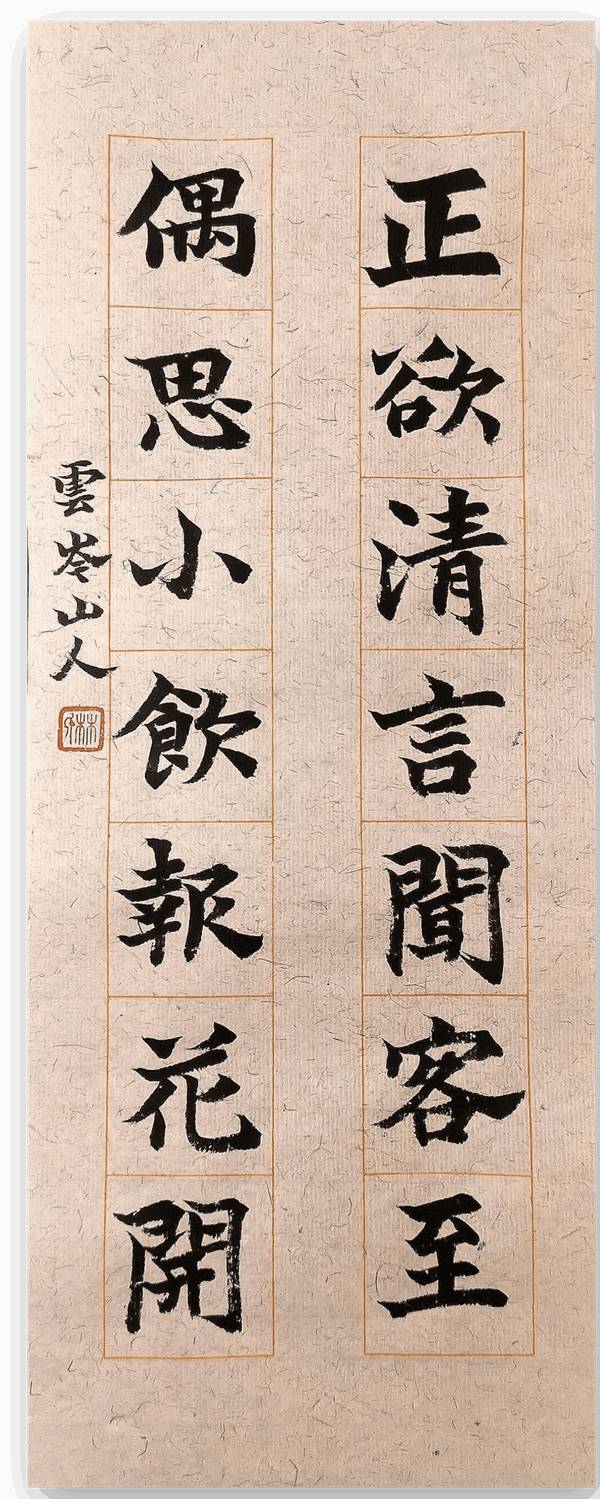 正欲清言聞客至
偶思小飲報花開
雲岺山人